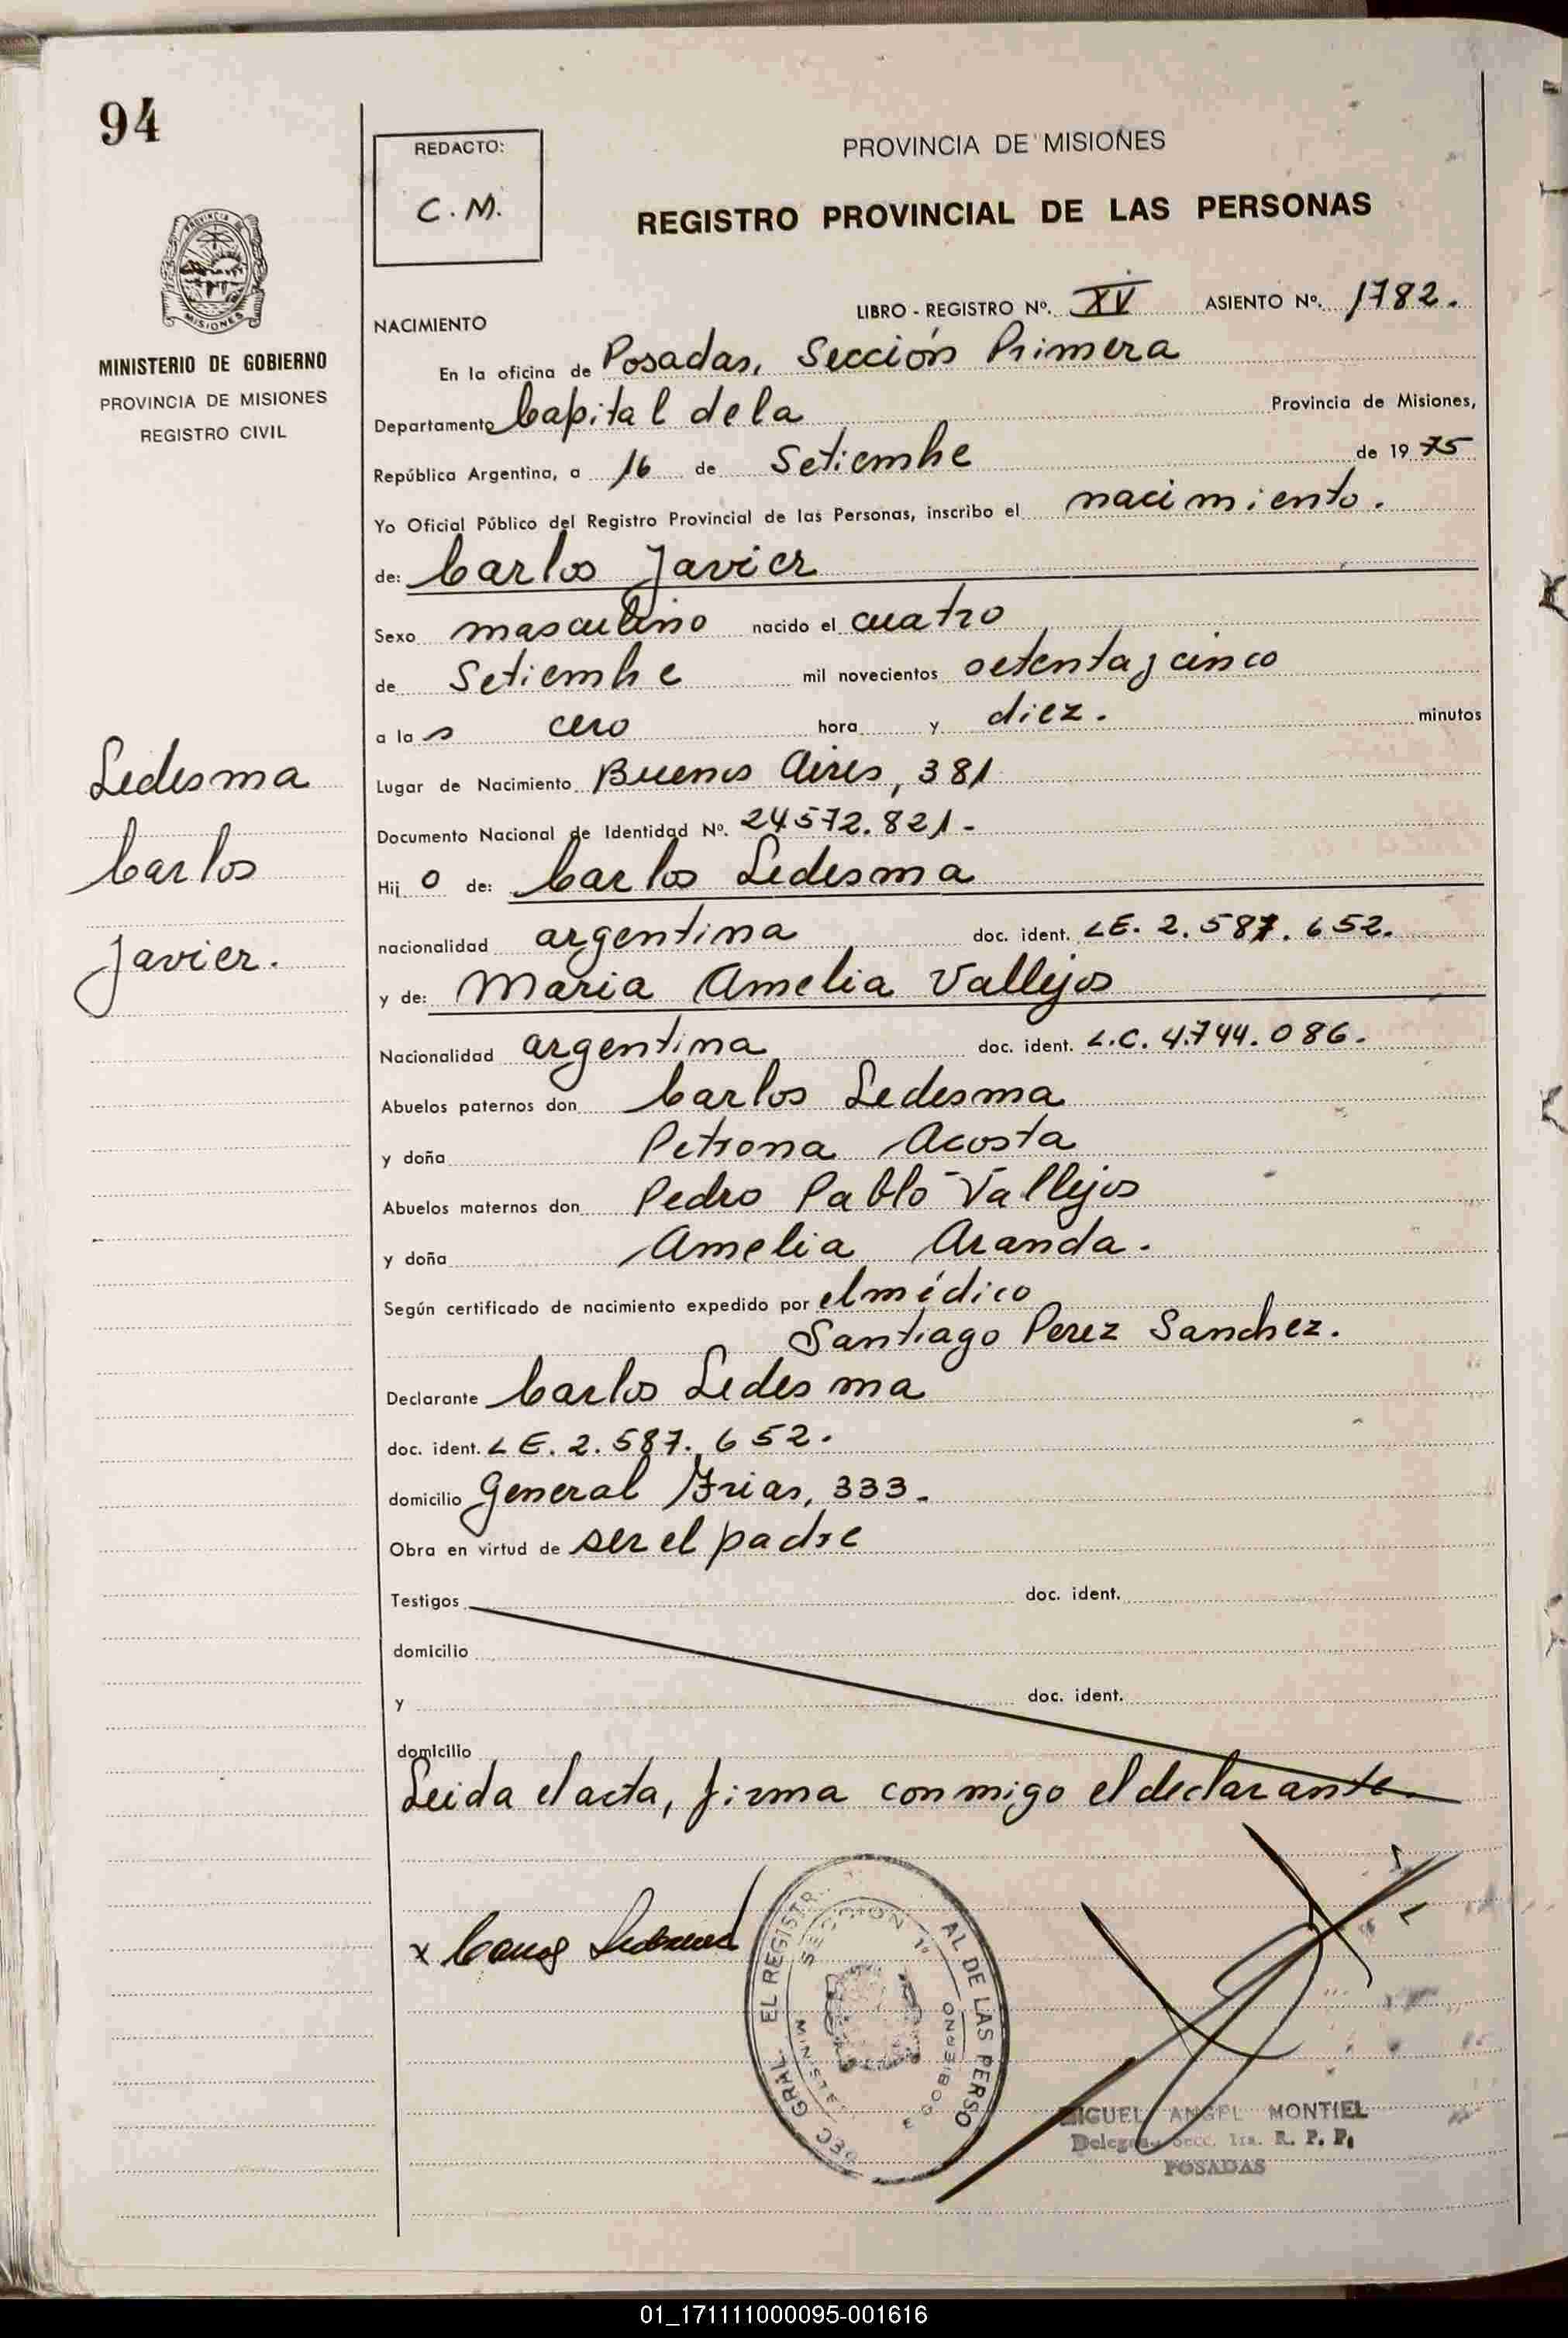 94
REDACTO:
C. M.
PROVINCIA DE MISIONES
REGISTRO PROVINCIAL DE LAS PERSONAS
PROVINCIA
MISIONES
MINISTERIO DE GOBIERNO
PROVINCIA DE MISIONES
REGISTRO CIVIL
LIBRO - REGISTRO Nº. XV ASIENTO Nº. 1782.
NACIMIENTO
En la oficina de Posadas, Sección Primera
Departamento Capital de la Provincia de Misiones,
República Argentina, a 16 de Setiembre de 1975
Yo Oficial Público del Registro Provincial de las Personas, inscribo el nacimiento.
de: Carlos Javier
Sexo masculino nacido el cuatro
de Setiembre mil novecientos setenta y cinco
a las cero hora y diez. minutos
Lugar de Nacimiento Buenos Aires, 381
Documento Nacional de Identidad Nº. 24572.821-
Hijo de: Carlos Ledesma
nacionalidad argentina doc. ident. LE. 2.587.652.
y de: Maria Amelia Vallejos
Nacionalidad argentina doc. ident. L.C. 4.744.086.
Abuelos paternos don Carlos Ledesma
y doña Petrona Acosta
Abuelos maternos don Pedro Pablo Vallejos
y doña Amelia Aranda.
Según certificado de nacimiento expedido por el médico
Santiago Perez Sanchez.
Declarante Carlos Ledesma
doc. ident. LE. 2.587.652.
domicilio General Frias, 333-
Obra en virtud de ser el padre
Testigos doc. ident.
domicilio
y doc. ident.
domicilio
Leida el acta, firma conmigo el declarante.
Ledesma
Carlos
Javier.
x Carlos Ledesma
SECCION 1ª
AL DE LAS PERSO
MIGUEL ANGEL MONTIEL
Secc. 1ra. R. P. P.
POSADAS
01_171111000095-001616